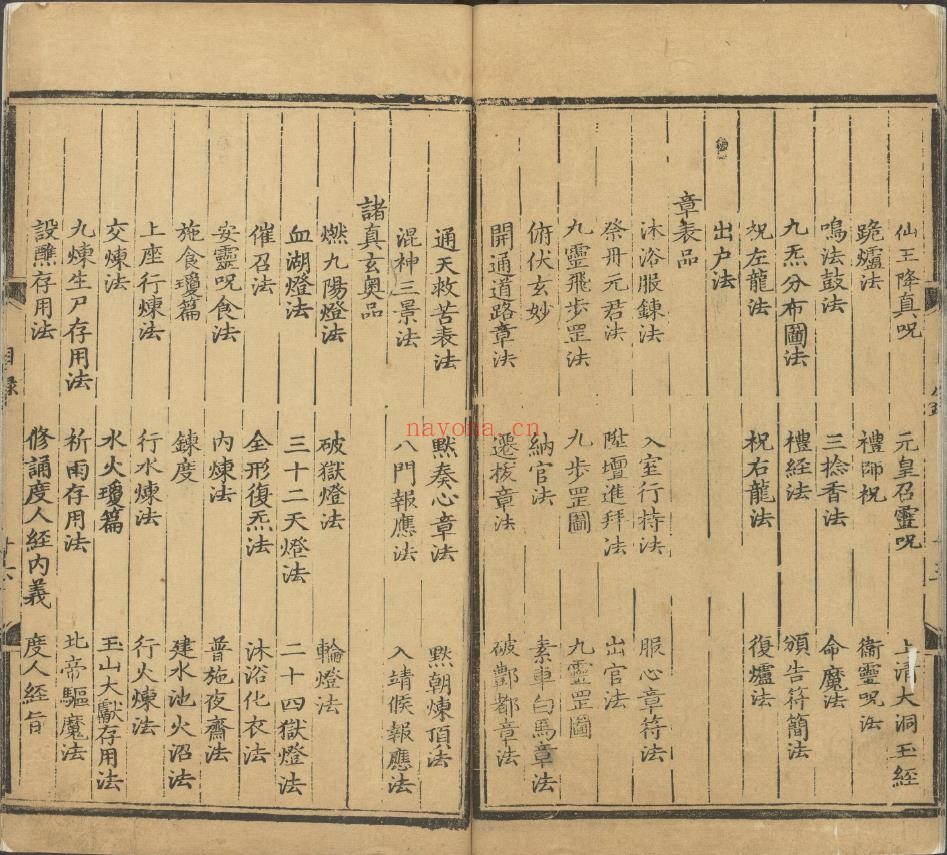 仙王降真呪 元皇召靈呪 上清大洞玉經
跪爐法 禮師祝 衞靈呪法
鳴法鼓法 三捻香法 命魔法
九炁分布圖法 禮經法 頒告符簡法
祝左龍法 祝右龍法 復爐法
出户法
章表品
沐浴服鍊法 入室行持法 服心章符法
祭丹元君法 陞壇進拜法 出官法
九靈飛步罡法 九步罡圖 九靈罡圖
俯伏玄妙 納官法 素車白馬章法
開通道路章法 遷拔章法 破酆都章法
通天救苦表法 黙奏心章法 黙朝煉頂法
混神三景法 八門報應法 入靖候報應法
諸真玄奥品
燃九陽燈法 破獄燈法 輪燈法
血湖燈法 三十二天燈法 二十四獄燈法
催召法 全形復炁法 沐浴化衣法
安靈呪食法 内煉法 普施夜齋法
施食瓊篇 鍊度 建水池火沼法
上座行煉法 行水煉法 行火煉法
交煉法 水火瓊篇 玉山大獻存用法
九煉生尸存用法 祈雨存用法 北帝驅魔法
設醮存用法 修誦度人經内義 度人經旨
目録
nayona.cn